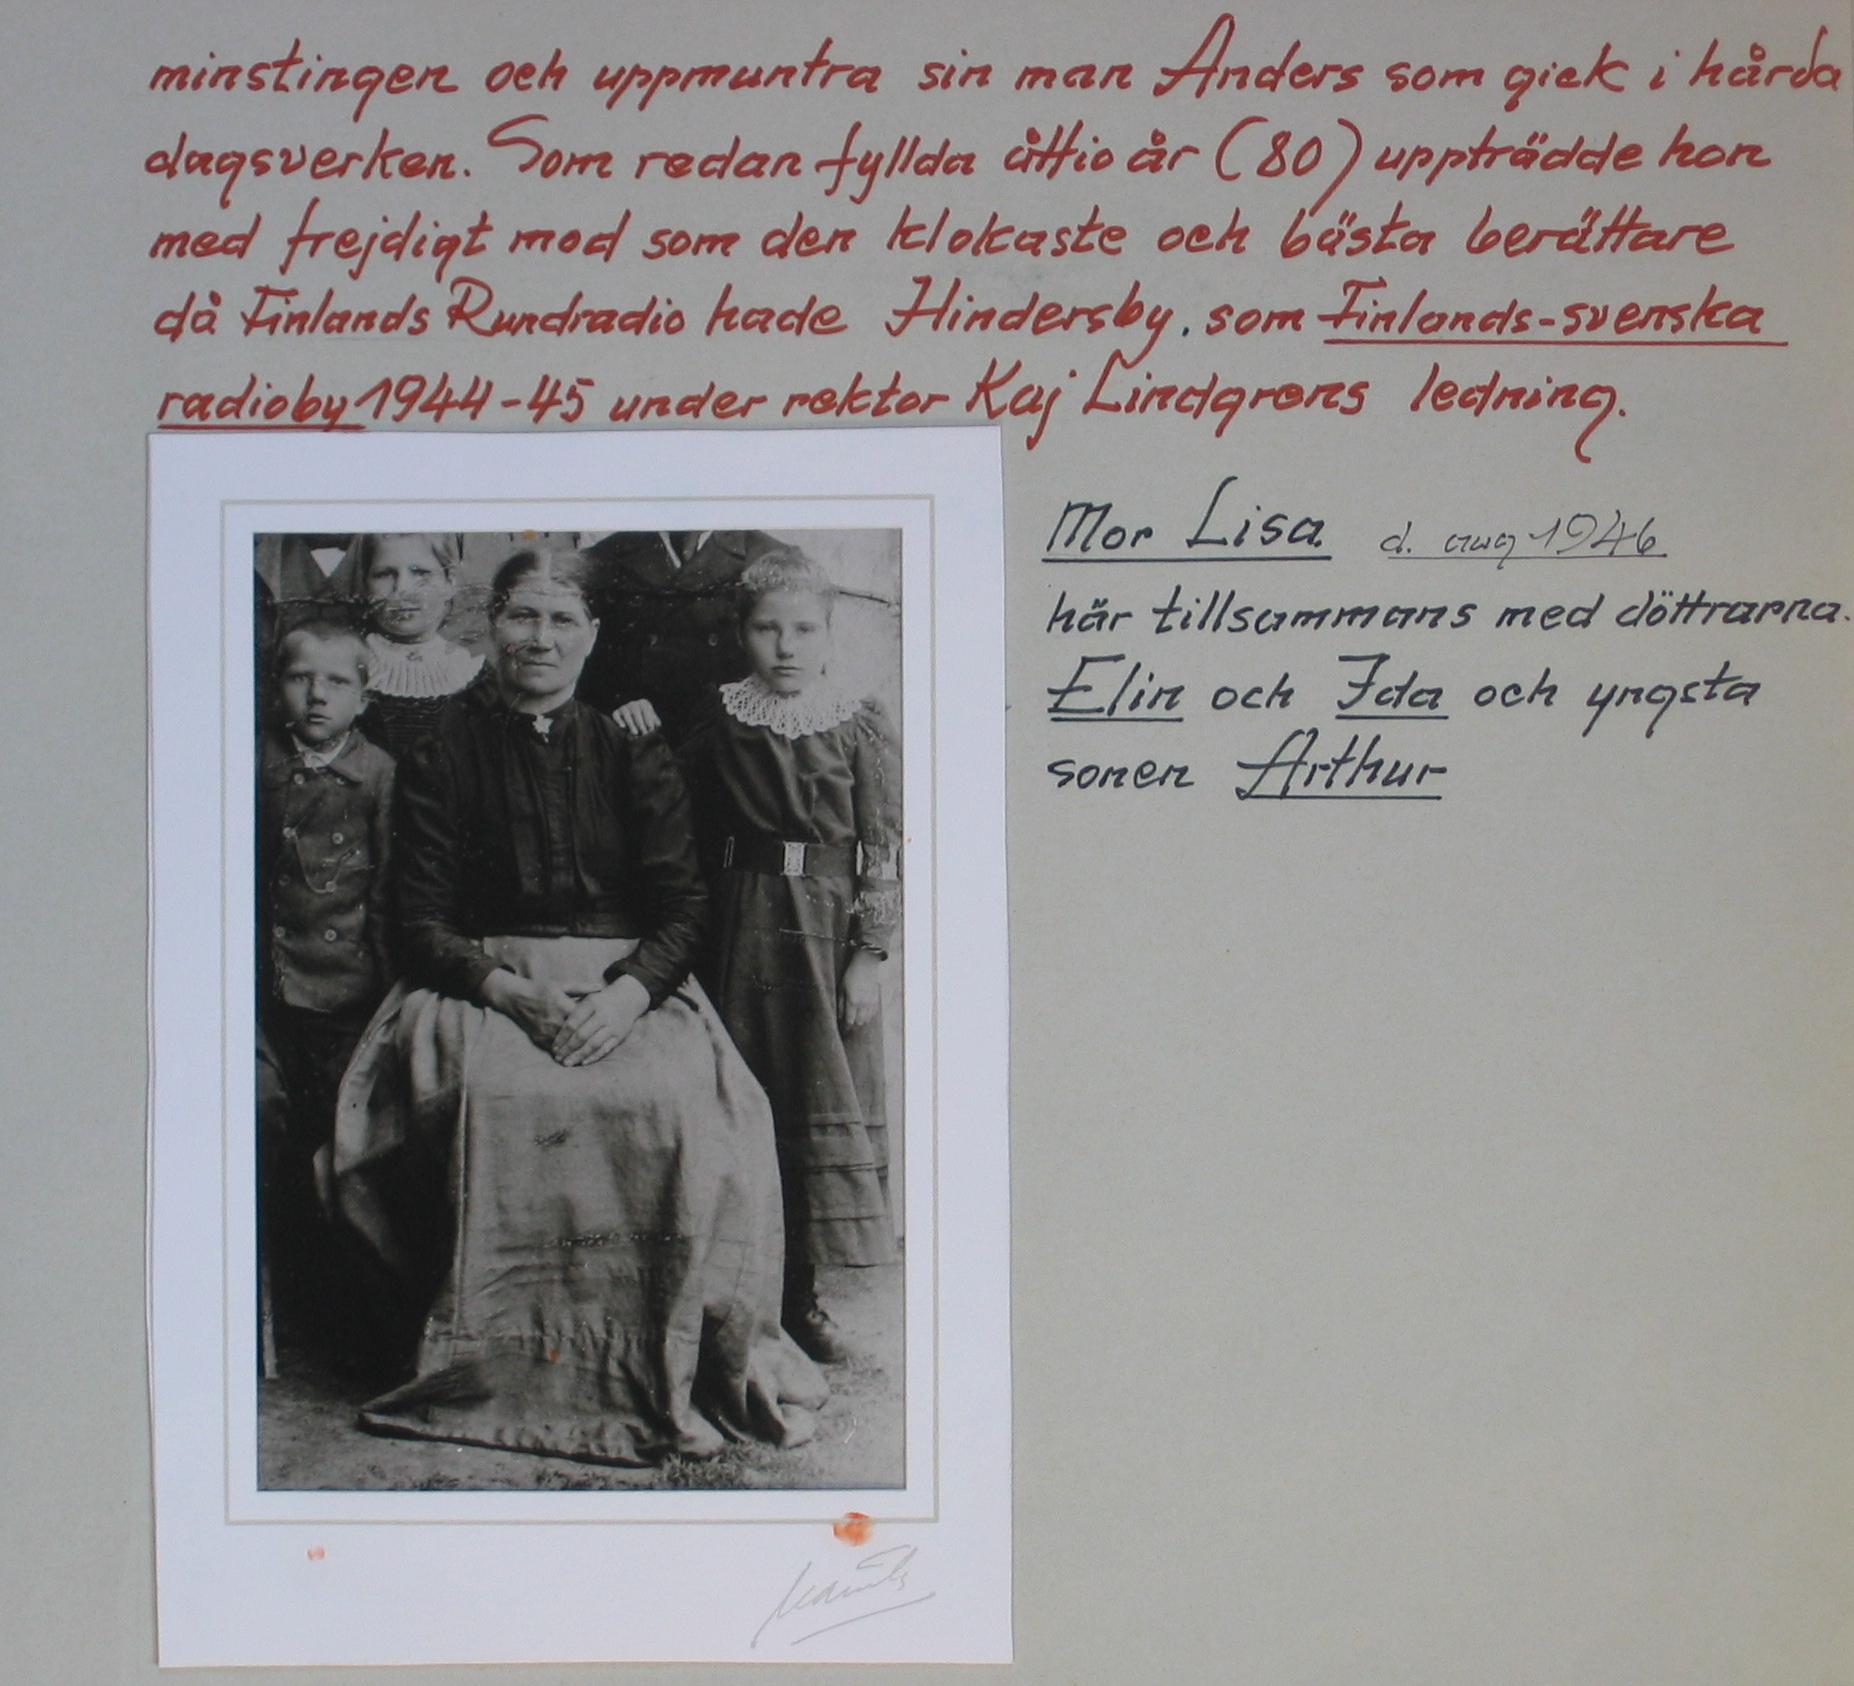 minstingen och uppmuntra sin man Anders som gick i hårda
dagsverken. Som redan fyllda åttio år (80) uppträdde hon
med frejdigt mod som den klokaste och bästa berättare
då Finlands Rundradio hade Hindersby. som Finlands-svenska
radioby 1944-45 under rektor Kaj Lindgrens ledning.
Mor Lisa d. aug 1946
här tillsammans med döttrarna.
Elin och Ida och yngsta
sonen Arthur